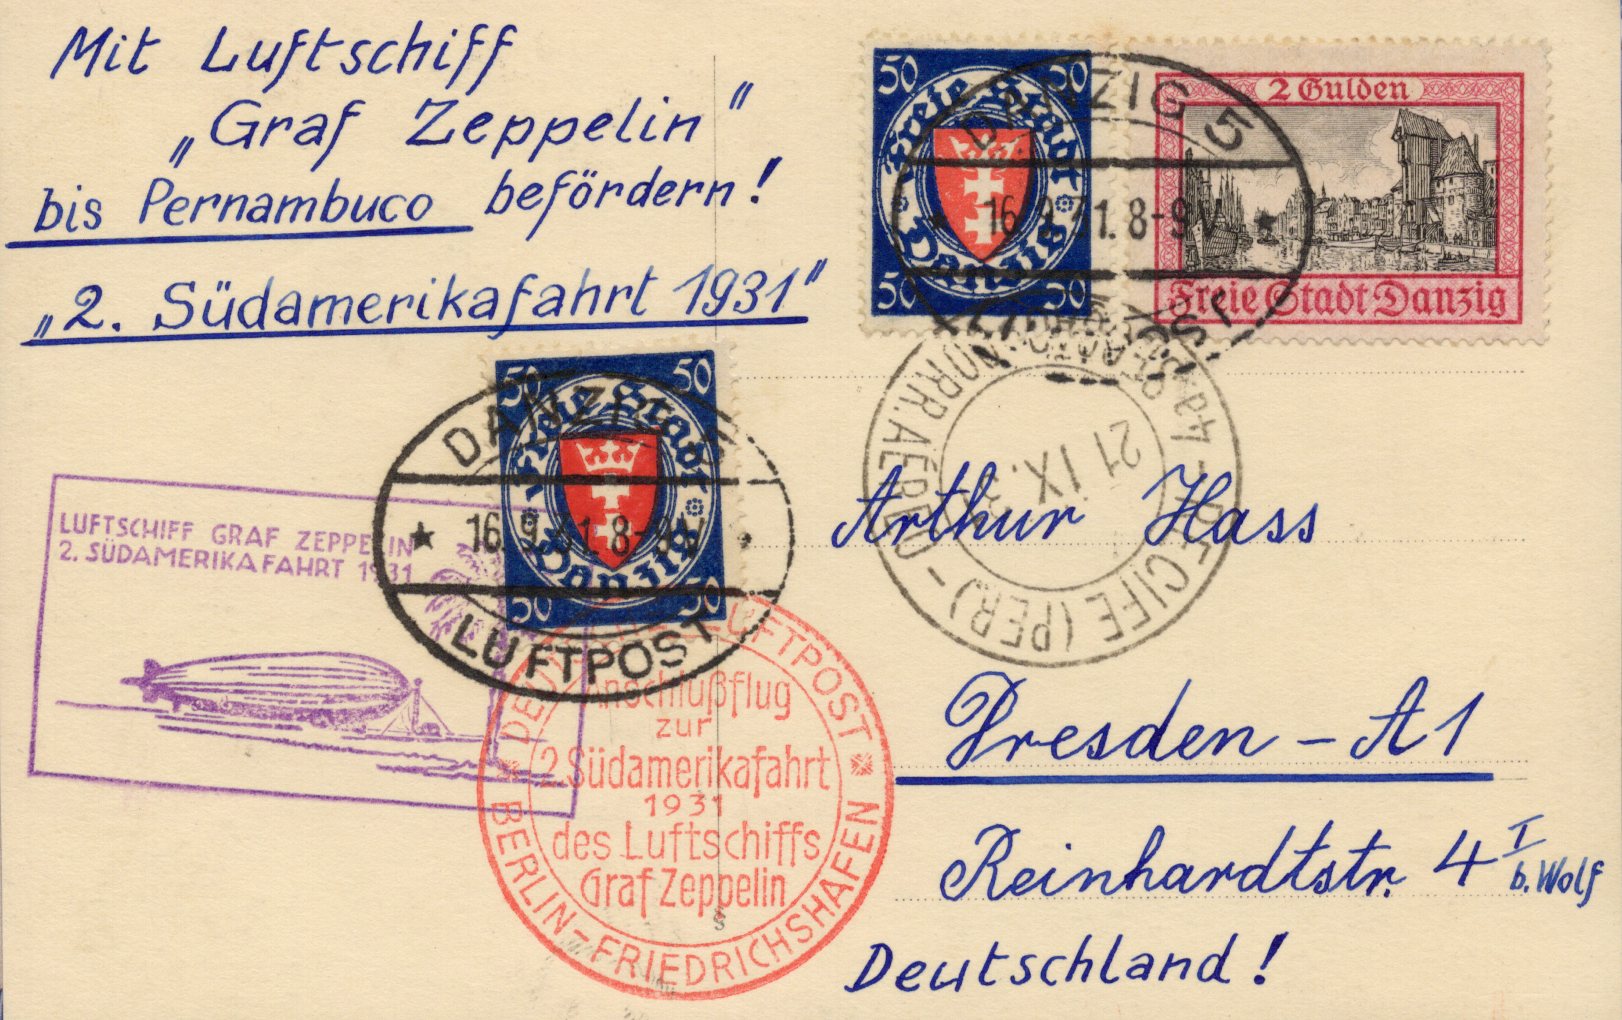 Mit Luftschiff
„Graf Zeppelin"
bis Pernambuco befördern!
„2. Südamerikafahrt 1931"
50 50
Freie Stadt
Danzig
50 50
2 Gulden
Freie Stadt Danzig
DANZIG 5
16.9.31.8-9V
50 50
Freie Stadt
Danzig
50 50
DANZIG
16.9.31.8-9V
LUFTPOST
LUFTSCHIFF GRAF ZEPPELIN
2. SÜDAMERIKAFAHRT 1931
LUFTPOST
Anschlußflug
zur
2. Südamerikafahrt
1931
des Luftschiffs
Graf Zeppelin
BERLIN-FRIEDRICHSHAFEN
21 IX. 3
RECIFE (PER.) - CORR. AEREO
Arthur Hass
Dresden - A1
Reinhardtstr. 4 I
b. Wolf
Deutschland!